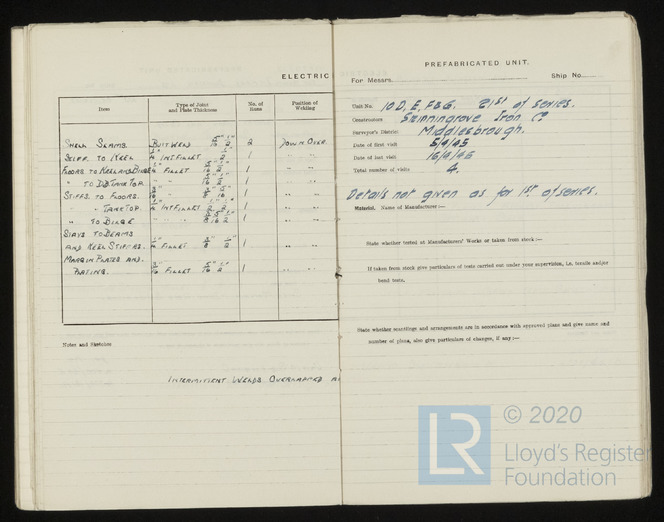 ELECTRIC
Item
Type of Joint and Plate Thickness
No. of Runs
Position of Welding
SHELL SEAMS. BUTT WELD 5/16" 1/2" 2 DOWN OVER
STIFF. TO KEEL 1/4" INT. FILLET 1/2" 1 " "
FLOORS TO KEEL AND BILGE 1/4" FILLET 5/16" 1/2" 1 " "
" TO D.B. TANK TOP. " " 5/16" 1/2" 1
STIFFS. TO FLOORS. 3/16" " 3/8" 5/16" 1
" " TANK TOP. 1/4" INT FILLET 1/2" 1/2" 1
" TO BILGE " " 3/8" 5/16" 1/2" 1
STAYS TO BEAMS
AND KEEL STIFFRS. 1/4" FILLET 3/8" 1/2" 1 " "
MARGIN PLATES AND
PLATING. 3/16" FILLET 5/16" 1/2" 1 " "
Notes and Sketches
INTERMITTENT WELDS OVERLAPPED
PREFABRICATED UNIT.
For Messrs. Ship No.
Unit No. 10 D, E, F & G. 21st of series.
Constructors Skinningrove Iron Co
Surveyor's District Middlesbrough.
Date of first visit 5/4/45
Date of last visit 16/4/45
Total number of visits 4.
Details not given as for 1st. of series.
Material. Name of Manufacturer:—
State whether tested at Manufacturers' Works or taken from stock:—
If taken from stock give particulars of tests carried out under your supervision, i.e. tensile and/or
bend tests.
State whether scantlings and arrangements are in accordance with approved plans and give name and
number of plans, also give particulars of changes, if any:—
© 2020
LR
Lloyd's Register
Foundation